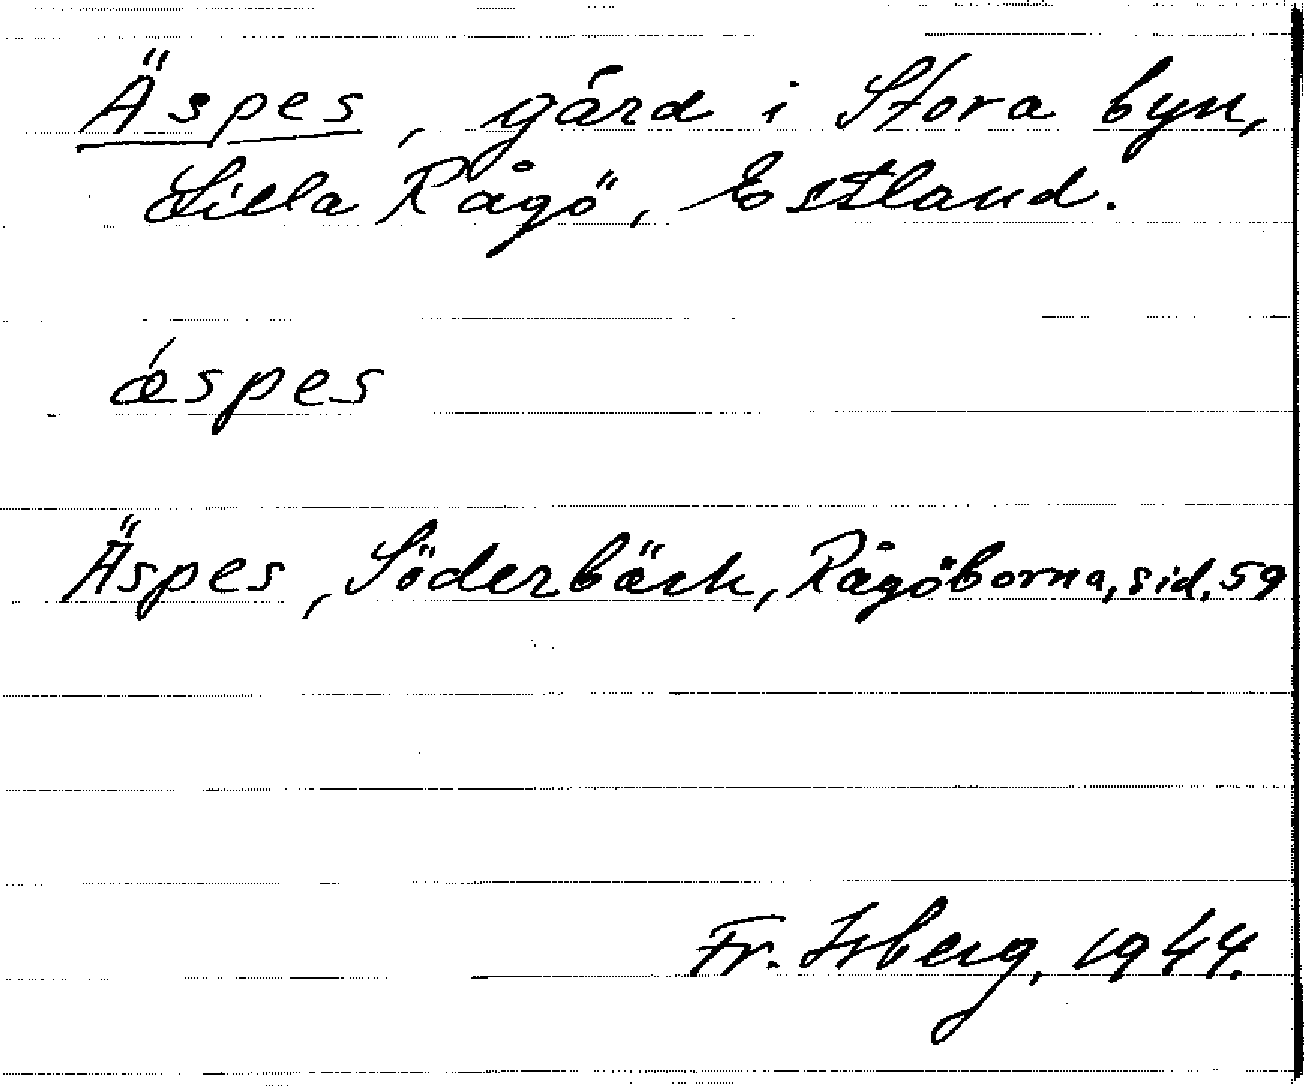 Äspes, gård i Stora byn,
Lilla Rågö, Estland.
ǽspes
Äspes, Söderbäck, Rågöborna, sid. 59
Fr. Isberg, 1944.